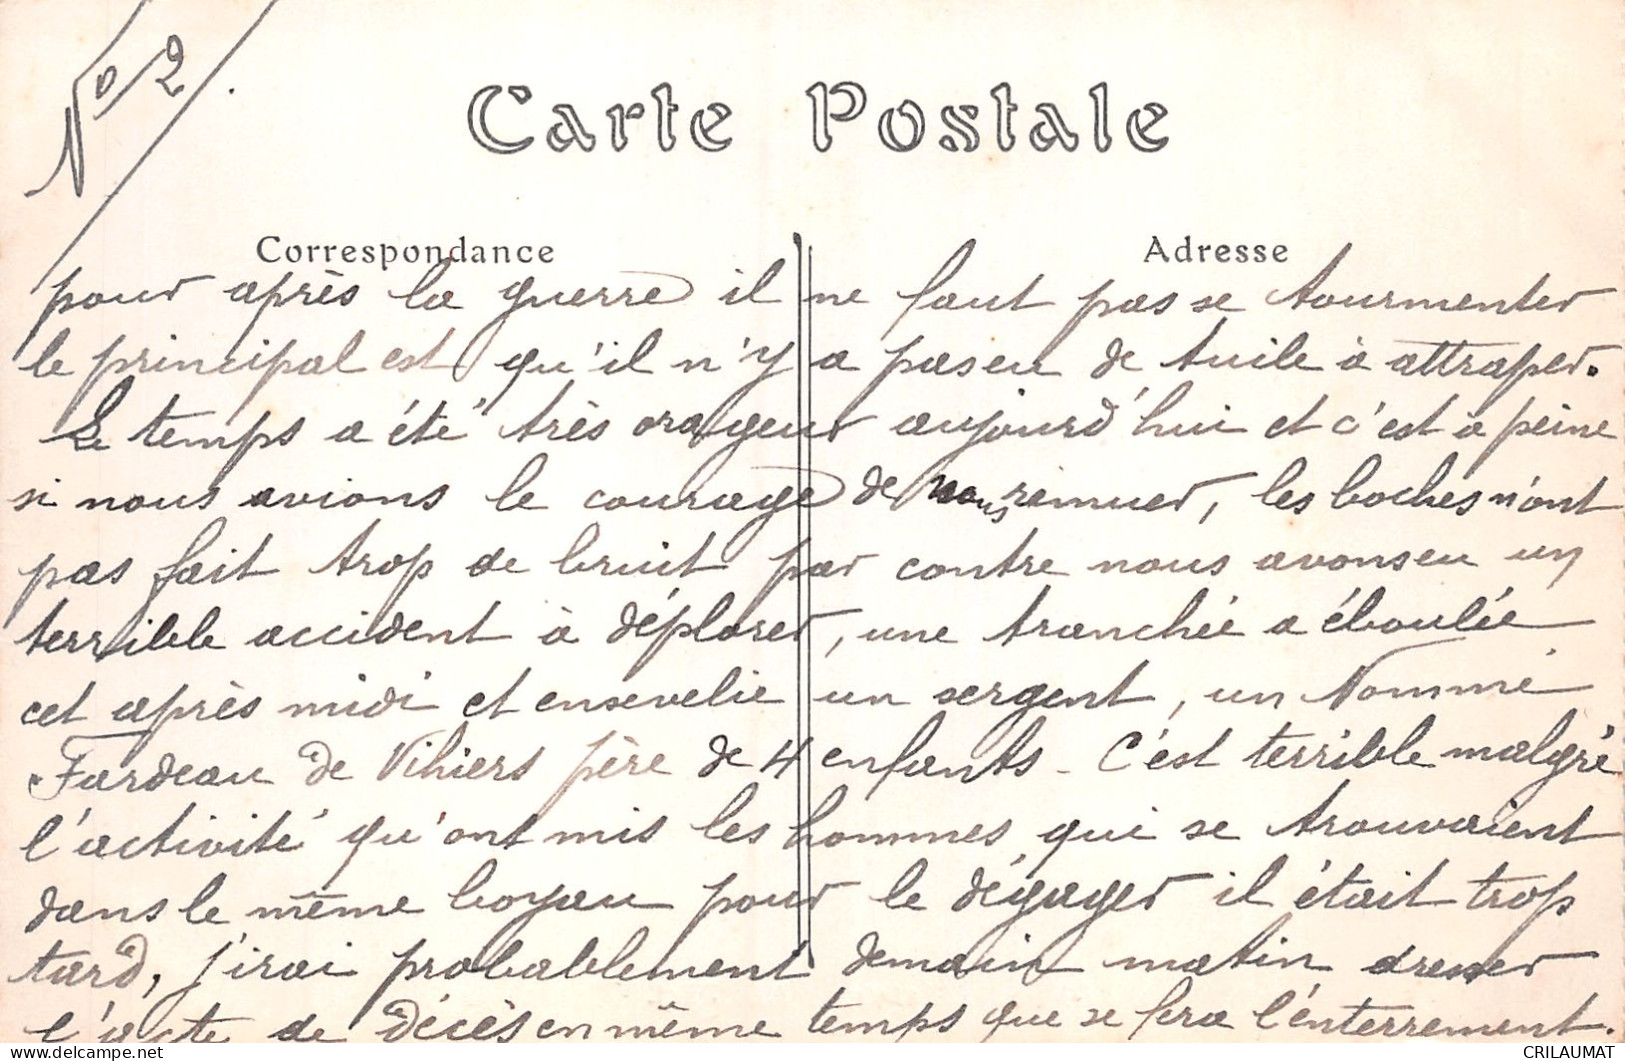 No 2
Carte Postale
Correspondance
Adresse
pour après la guerre il ne faut pas se tourmenter
le principal est qu'il n'y a pas eu de tuile à attraper.
Le temps a été très orageux aujourd'hui et c'est à peine
si nous avions le courage de nous remuer, les boches n'ont
pas fait trop de bruit par contre nous avons eu un
terrible accident à déplorer, une tranchée a éboulée
cet après midi et ensevelie un sergent, un Nommé
Fardeau de Vihiers père de 4 enfants - C'est terrible malgré
l'activité qu'ont mis les hommes qui se trouvaient
dans le même boyau pour le dégager il était trop
tard, j'irai probablement demain matin dresser
l'acte de décès en même temps que se fera l'enterrement.
CRILAUMAT